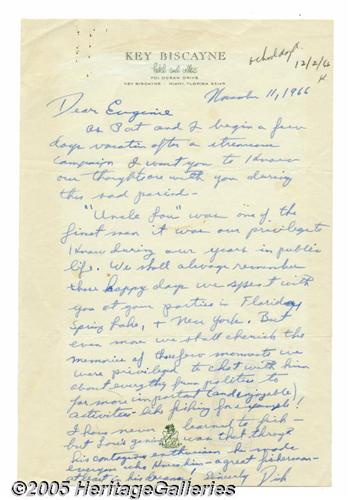 KEY BISCAYNE
hotel and villas
701 OCEAN DRIVE
KEY BISCAYNE MIAMI, FLORIDA
12/2/66
November 11, 1966
Dear Eugenie
As Pat and I begin a few
days vacation after a strenuous
campaign I want you to know
our thoughts are with you during
this sad period-
"Uncle Lou" was one of the
finest men it was our privilege to
know during our years in public
life. We shall always remember
those happy days we spent with
you at your parties in Florida,
Spring Lake, + New York. But
even more we shall cherish the
memories of those few moments we
were privileged to chat with him
about everything from politics to
far more important (and enjoyable)
activities like fishing for example!
I have never learned to fish-
but Lou's genius was that through
his contagious enthusiasm he made
everyone who knew him - a great fisherman-
at least in his
Sincerely Dick
©2005 HeritageGalleries